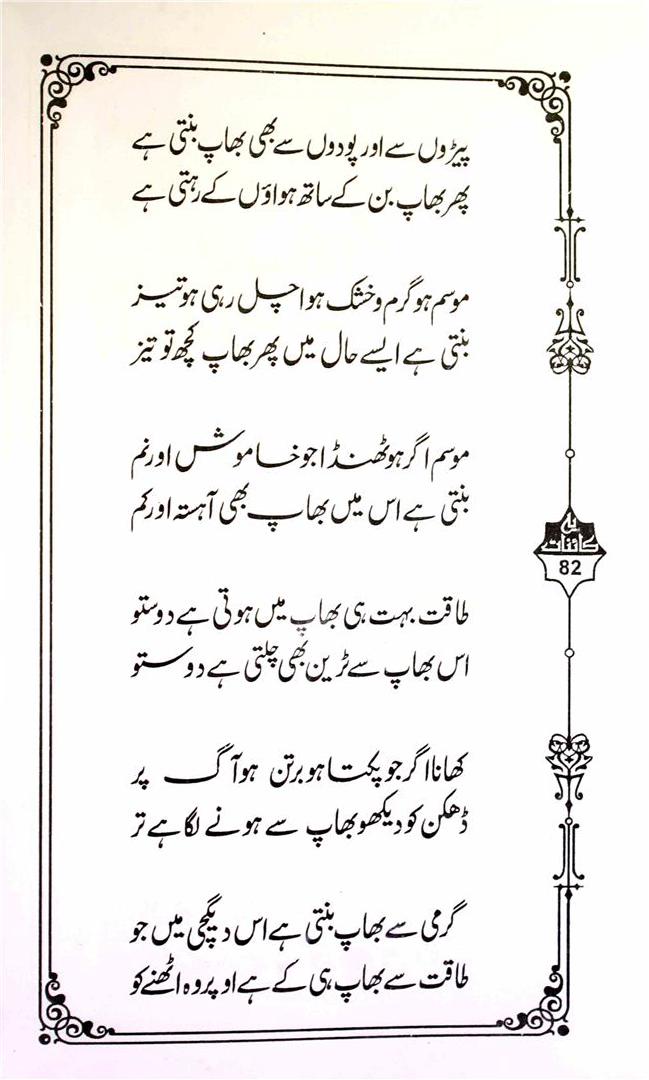 پیڑوں سے اور پودوں سے بھی بھاپ بنتی ہے
پھر بھاپ بن کے ساتھ ہواؤں کے رہتی ہے
موسم ہو گرم و خشک ہوا چل رہی ہو تیز
بنتی ہے ایسے حال میں پھر بھاپ کچھ تو تیز
موسم اگر ہو ٹھنڈا جو خاموش اور نم
بنتی ہے اس میں بھاپ بھی آہستہ اور کم
طاقت بہت ہی بھاپ میں ہوتی ہے دوستو
اس بھاپ سے ٹرین بھی چلتی ہے دوستو
کھانا اگر جو پکتا ہو برتن ہو آگ پر
ڈھکن کو دیکھو بھاپ سے ہونے لگا ہے تر
گرمی سے بھاپ بنتی ہے اس دیگچی میں جو
طاقت سے بھاپ ہی کے ہے اوپر وہ اٹھنے کو
یہ
کائنات
82